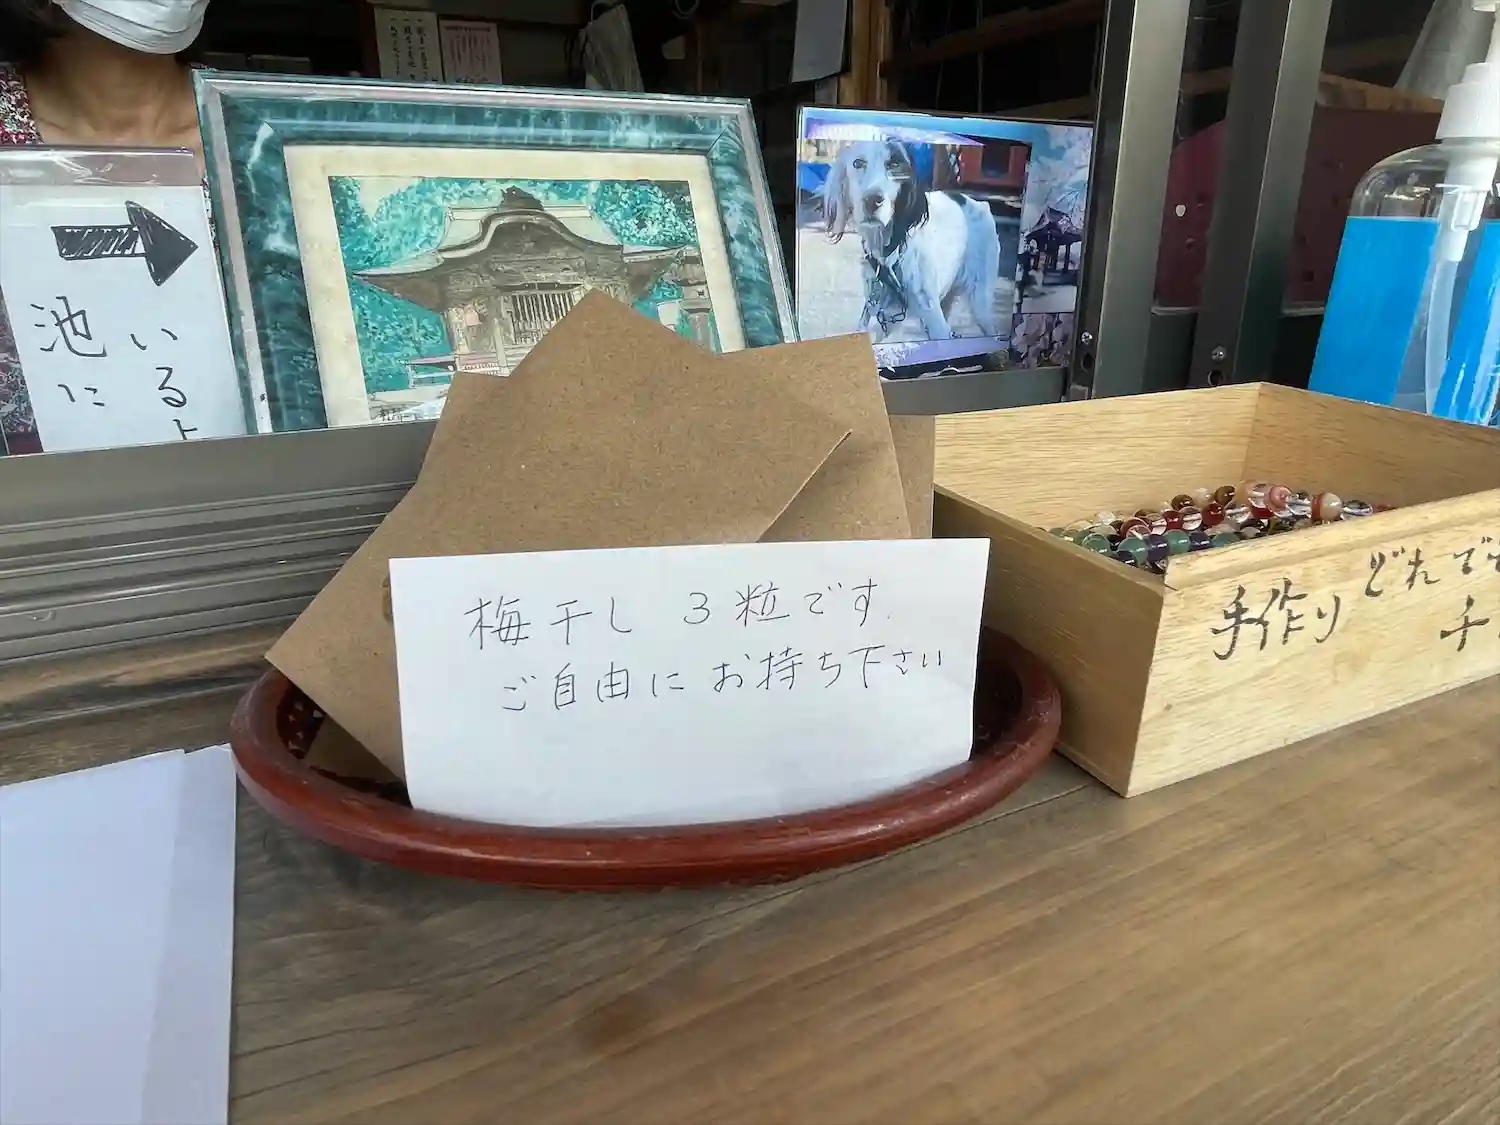 池に
いるよ
梅干し 3粒です.
ご自由にお持ち下さい
手作り
どれで